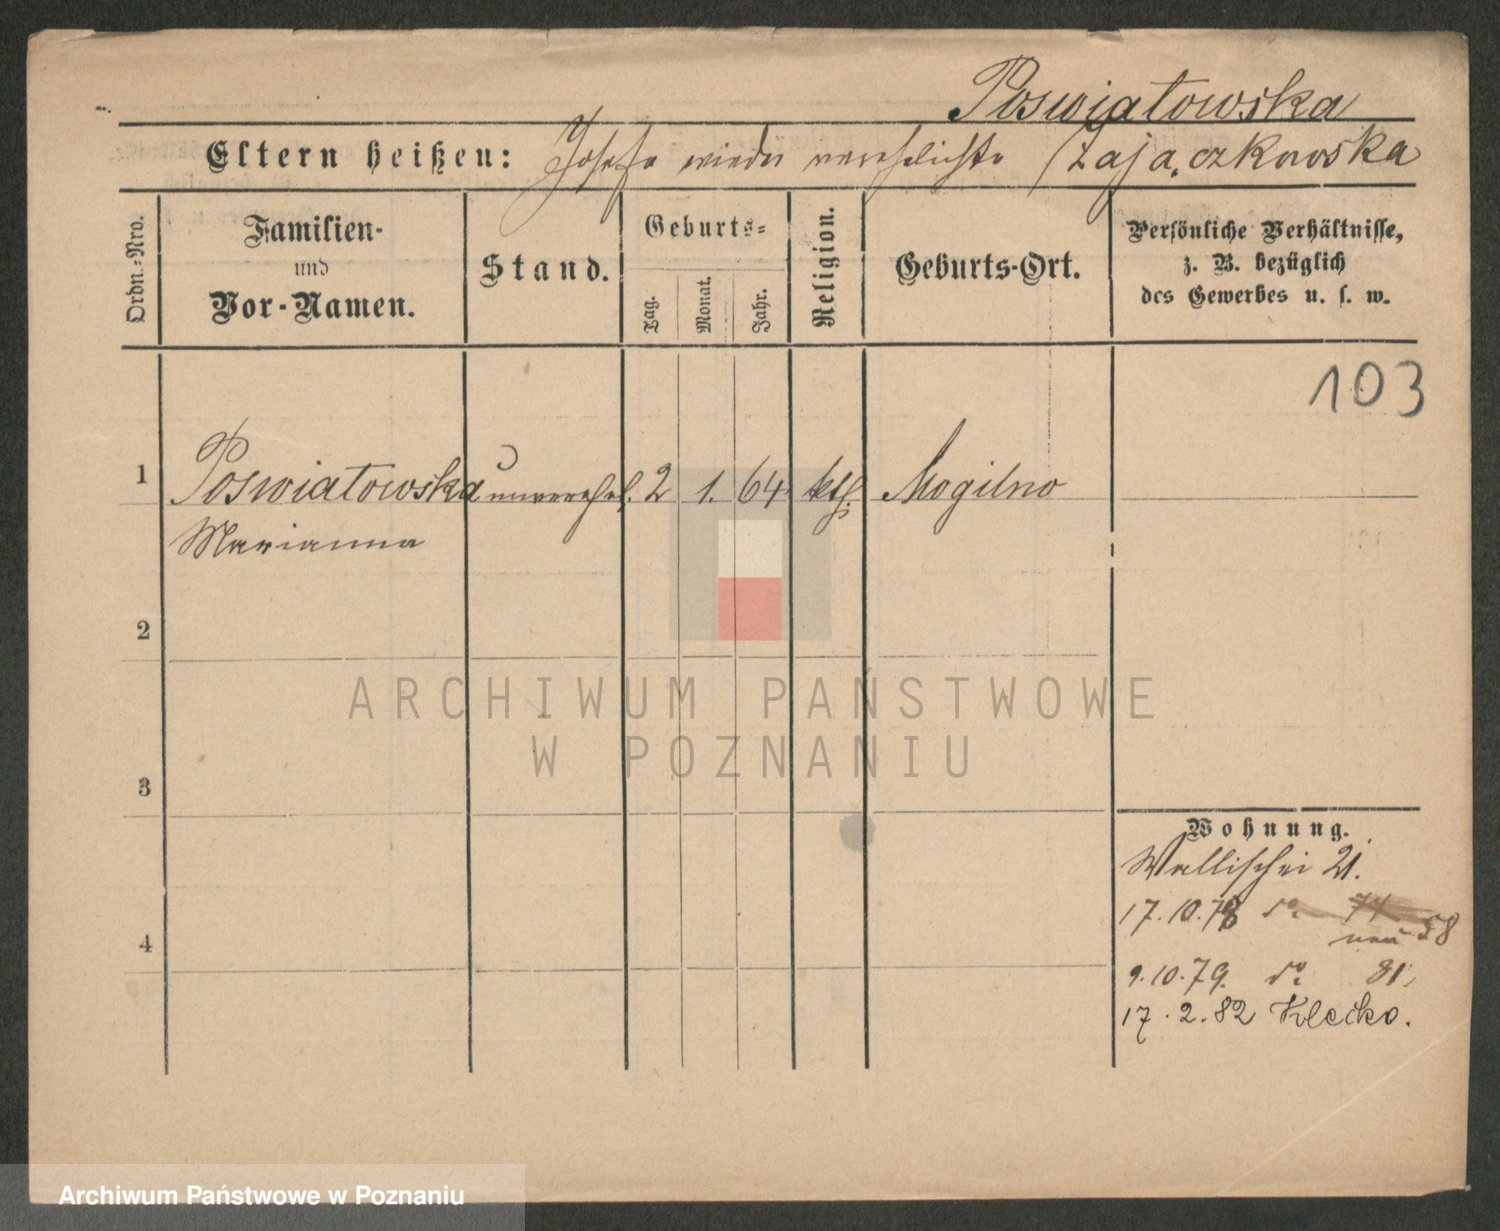 Poswiatowska
Eltern heißen: Josefa wieder verehelichte Zajączkowska
Ordn.-Nro.
Familien-
und
Vor-Namen.
Stand.
Geburts-
Tag.
Monat.
Jahr.
Religion.
Geburts-Ort.
Persönliche Verhältnisse,
z. B. bezüglich
des Gewerbes u. s. w.
103
1 Poswiatowska unverehel. 2 1. 64 kth. Mogilno
Marianna
2
3
4
Wohnung.
Wallischei 21.
17.10.78 do 74
neu 58
9.10.79. do 81.
17.2.82 Klecko.
ARCHIWUM PAŃSTWOWE
W POZNANIU
Archiwum Państwowe w Poznaniu